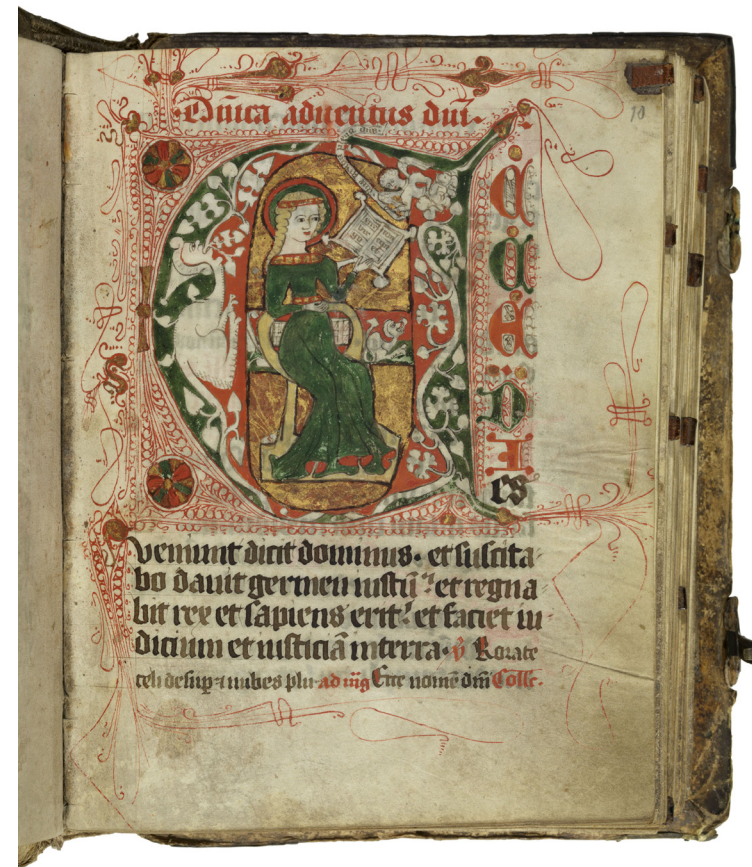 Dn̄ica aduentus dn̄i.
10
E
c
c
e
D
I
es
veniunt dicit dominus. et suscita-
bo dauit germen iustū: et regna-
bit rex et sapiens erit: et faciet iu-
dicium et iusticiā interra. v̄ Rorate
celi desup ⁊ nubes plu. ad m̄g Ecce nomē dn̄i Collc.